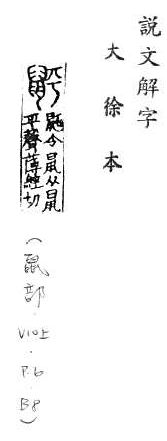 說文解字
大徐本
令鼠从鼠
平聲薄經切
(鼠部.V10上.P.6.B8)